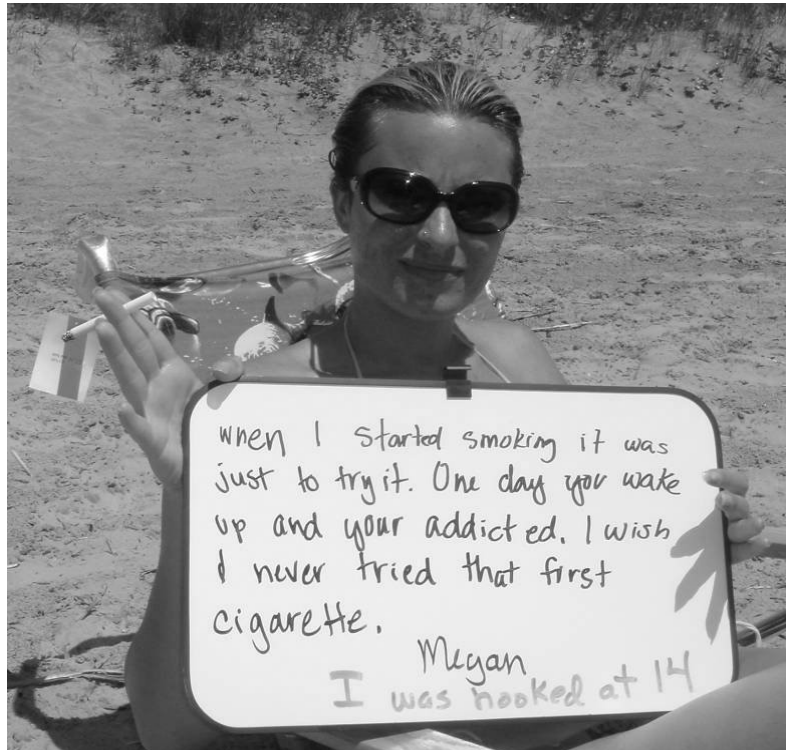 when I started smoking it was
just to try it. One day you wake
up and your addicted. I wish
I never tried that first
cigarette.
Megan
I was hooked at 14